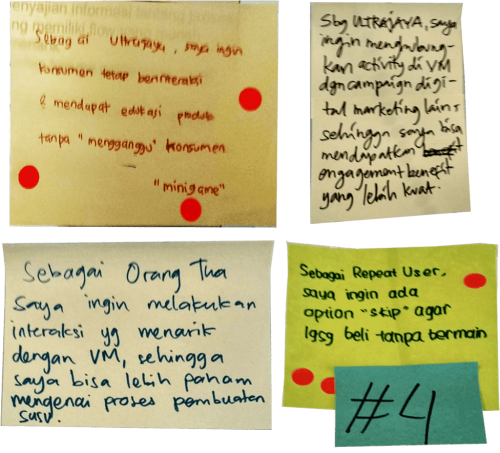 enyajian informasi tentang proses
ng memiliki flow
Sebagai Ultrajaya, saya ingin
konsumen tetap berinteraksi
& mendapat edukasi produk
tanpa "mengganggu" konsumen
"minigame"
Sbg ULTRAJAYA, saya
ingin menghubung-
kan activity di VM
dgn campaign digi-
tal marketing lain,
sehingga saya bisa
mendapatkan
engagement benefit
yang lebih kuat.
Sebagai Orang Tua
saya ingin melakukan
interaksi yg menarik
dengan VM, sehingga
saya bisa lebih paham
mengenai proses pembuatan
susu.
Sebagai Repeat User,
saya ingin ada
option "skip" agar
lgsg beli tanpa bermain
#4